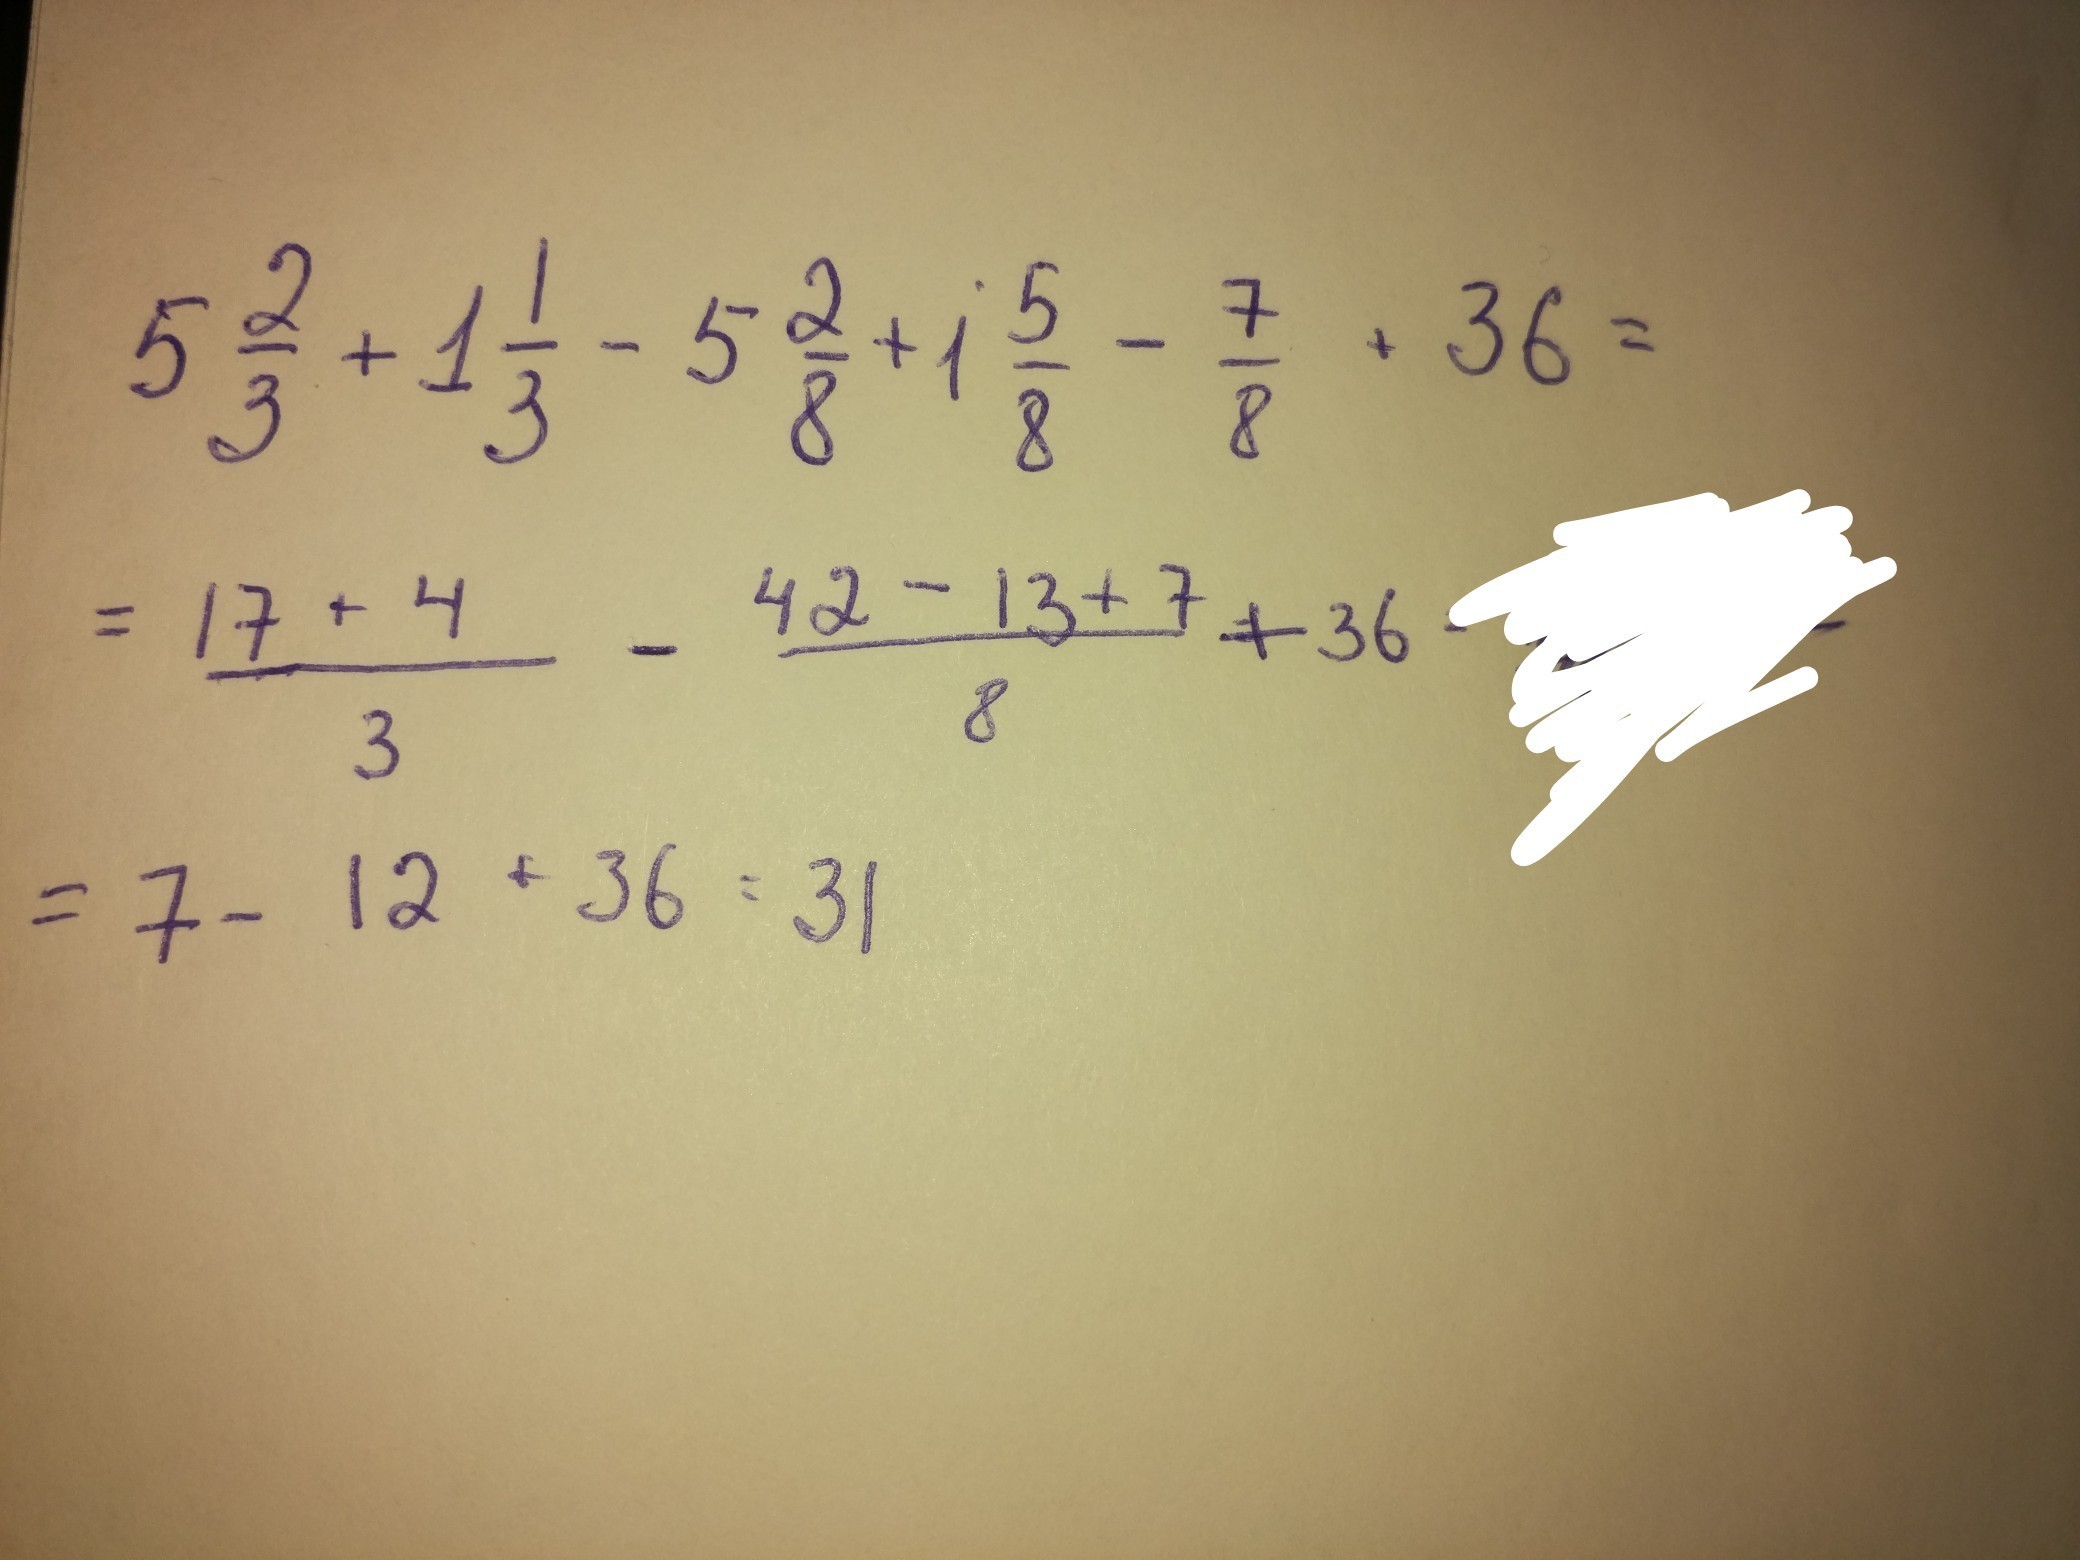 5 2/3 + 1 1/3 - 5 2/8 + 1 5/8 - 7/8 + 36 =
= (17 + 4)/3 - (42 - 13 + 7)/8 + 36
= 7 - 12 + 36 = 31